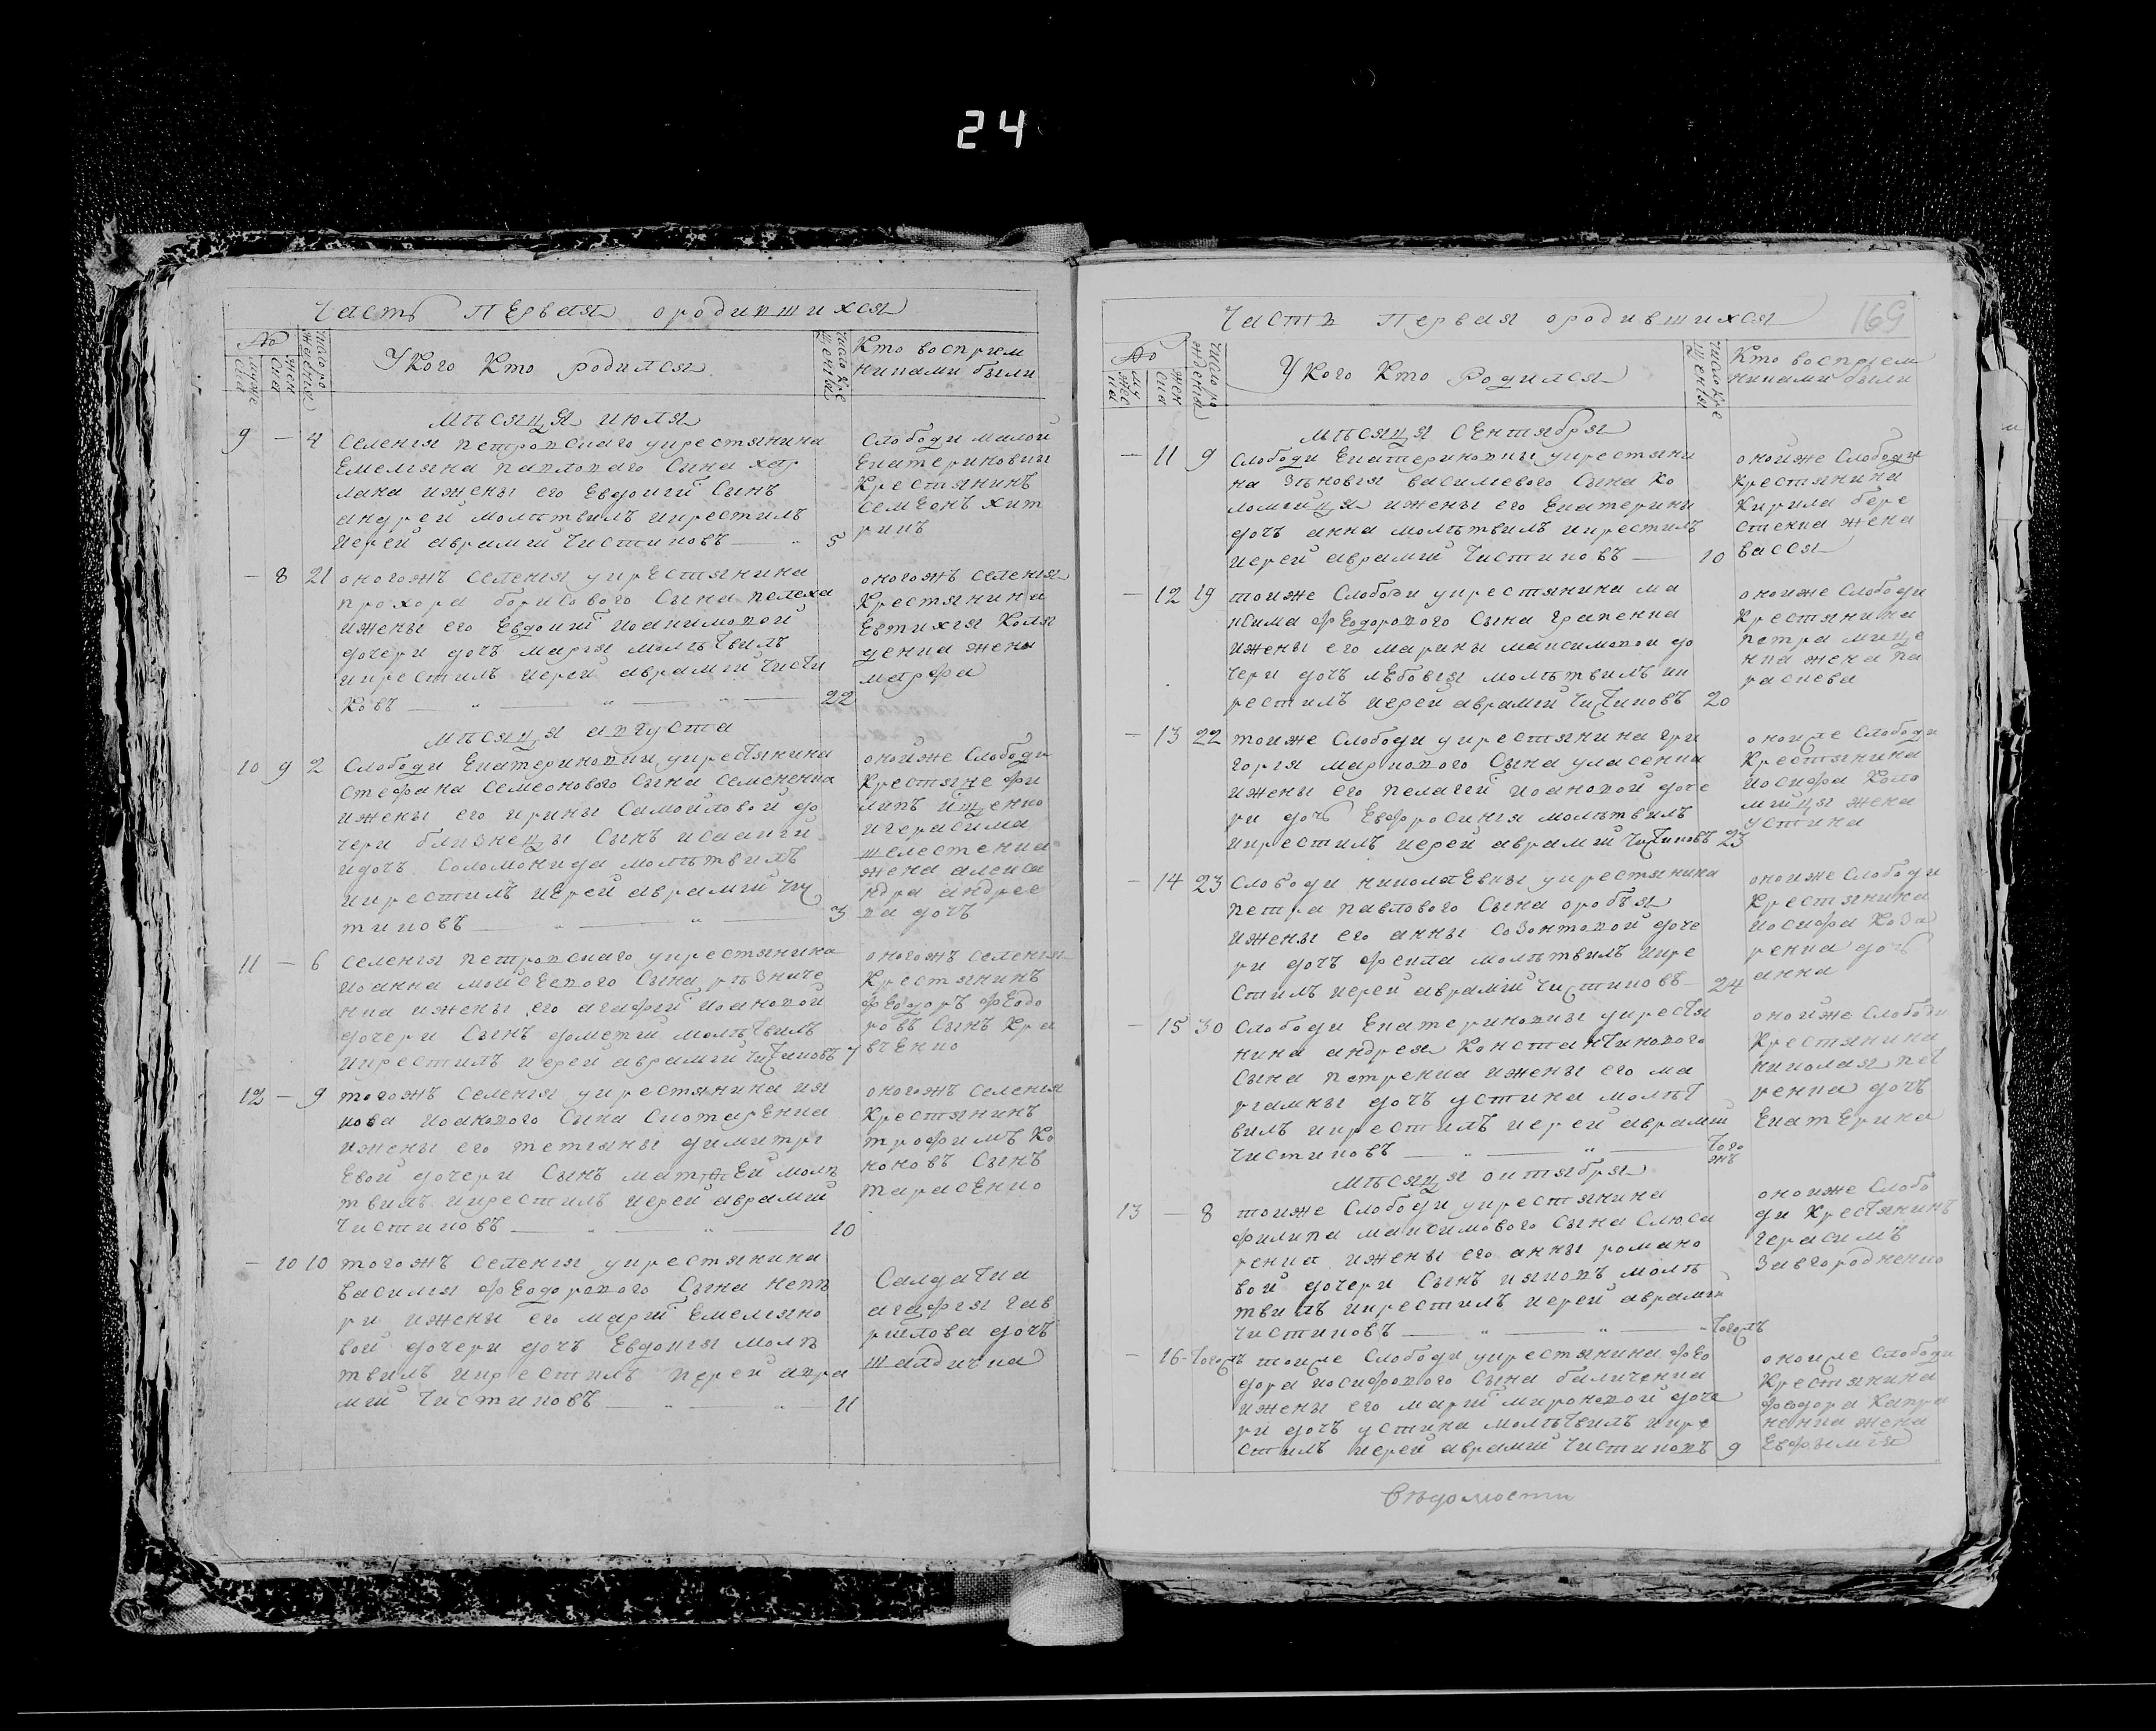 24
Часть Первая ородившихся
№
мужеска
женска
число рождения
У Кого Кто родился
число крещения
Кто воспріем
никами были
мѣсяця июля
9 — 4 селенія петровскаго укрестянина
Емеліяна павловаго Сына хар
лана ижены его Евдокіи Сынъ
андрей молитвилъ икрестилъ
иерей аврамий Чистиковъ — 5
Слободи малой
Екатериновки
Крестянинъ
семеонъ хит
рикъ
— 8 21 оногожъ селенія укрестянина
прохора борисового Сына пелеха
ижены его Евдокии иоакимовой
дочери дочъ марія молитвилъ
икрестилъ иерей аврамий чисти
ковъ — 22
оногожъ селенія
Крестянина
Евтихія Коля
денка жена
марфа
мѣсяця августа
10 9 2 Слободи Екатериновки укрестянина
стефана семеонового Сына семененка
ижены его ирины Самойловой до
чери близнецы Сынъ исаакий
идочъ Соломонида молитвилъ
икрестилъ иерей аврамий чис
тиковъ — 3
онойже Слободи
Крестяне фи
липъ ищенко
игерасима
шелестенка
жена алекса
ндра андрее
ва дочъ
11 — 6 селенія петровскаго укрестянина
иоанна мойсеевого Сына рѣзниче
нка ижены его агафіи иоановой
дочери Сынъ дометий молитвилъ
икрестилъ иерей аврамий чистиковъ 7
оногожъ селенія
Крестянинъ
феодоръ феодо
ровъ Сынъ Кра
вченко
12 — 9 тогожъ селенія укрестянина ия
кова иоанового Сына Слотаренка
ижены его тетяны димитрі
Евой дочери Сынъ матфей моли
твилъ икрестилъ иерей аврамий
Чистиковъ — 10
оногожъ селенія
Крестянинъ
трофимъ Ко
ноновъ Сынъ
тарасенко
— 10 10 тогожъ селенія укрестянина
василія феодорового Сына непи
ри ижены его маріи Емеліяно
вой дочери дочъ Евдокія моли
твилъ икрестилъ иерей авра
мий Чистиковъ — 11
Салдатка
агафія гав
рилова дочъ
шалдичка
169
Часть первая ородившихся
№
мужеска
женска
число рождения
У Кого Кто Родился
число крещения
Кто воспріем
никами были
мѣсяця сентября
— 11 9 Слободи Екатериновки укрестяни
на Зѣновія василевого Сына Ко
ломийця ижены его Екатерины
дочъ анна молитвилъ икрестилъ
иерей аврамий Чистиковъ — 10
онойже Слободи
Крестянина
Кирила бере
стенка жена
васса
— 12 19 тойже Слободи укрестянина ма
ксима феодорового Сына Гапенка
ижены его марины максимовой до
чери дочъ любовія молитвилъ ик
рестилъ иерей аврамий чистиковъ 20
онойже Слободи
Крестянина
петра мице
нка жена па
раскева
— 13 22 тойже Слободи укрестянина гри
горія маркового Сына уласенка
ижены его пелагіи иоановой доче
ри дочъ Евфросинія молитвилъ
икрестилъ иерей аврамий чистиковъ 23
онойже Слободи
Крестянина
иосифа Коло
мийця жена
устина
— 14 23 Слободи николаевки укрестянина
петра павлового Сына оробъя
ижены его анны Созонтовой доче
ри дочъ фекла молитвилъ икре
стилъ иерей аврамій чистиковъ — 24
онойже Слободи
Крестянина
иосифа Коза
ренка дочъ
анна
— 15 30 Слободи Екатериновки укрестя
нина андрея Константинового
Сына петренка ижены его ма
риамны дочъ устина молит
вилъ икрестилъ иерей аврамий
чистиковъ — того
жъ
онойже Слободи
Крестянина
николая пет
ренка дочъ
Екатерина
мѣсяця октября
13 — 8 тойже Слободи укрестянина
филипа максимового Сына Слюса
ренка ижены его анны романо
вой дочери Сынъ ияковъ моли
твилъ икрестилъ иерей аврамий
Чистиковъ — тогожъ
онойже Слобо
ди Крестянинъ
герасимъ
Завгородненко
— 16 тогожъ тойже Слободи укрестянина фео
дора иосифового Сына баличенка
ижены его маріи мироновой доче
ри дочъ устина молитвилъ икре
стилъ иерей аврамий чистиковъ 9
онойже Слободи
Крестянина
феодора Капра
ненка жена
Евфимія
Вѣдомости